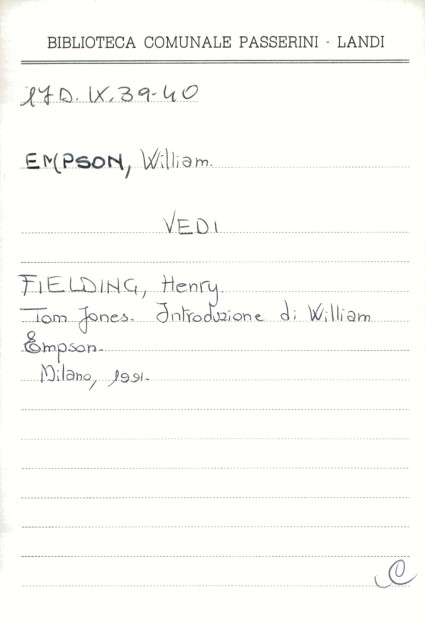 BIBLIOTECA COMUNALE PASSERINI - LANDI
17D.IX.39-40
EMPSON, William.
VEDI
FIELDING, Henry.
Tom Jones. Introduzione di William
Empson.
Milano, 1991.
C